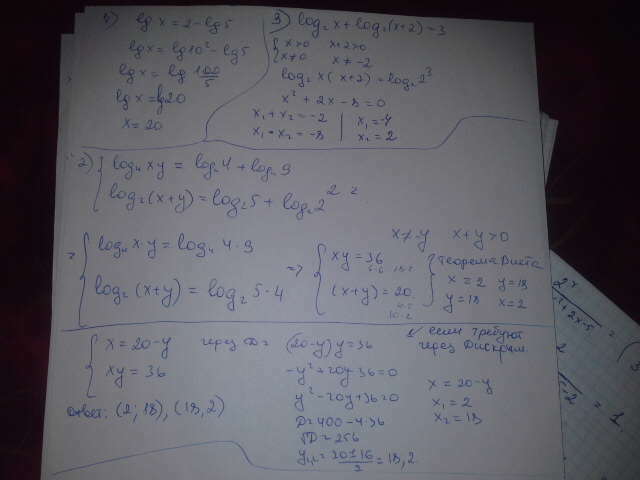 1) lg x = 2 - lg 5
lg x = lg 10² - lg 5
lg x = lg 100/5
lg x = lg 20
x = 20
3) log₂ x + log₂ (x+2) = 3
{ x>0 x+2>0
x≠0 x≠-2
log₂ x (x+2) = log₂ 2³
x² + 2x - 8 = 0
x₁ + x₂ = -2 | x₁ = -4
x₁ · x₂ = -8 | x₂ = 2
2) { log₄ xy = log₄ 4 + log₄ 9
log₂ (x+y) = log₂ 5 + log₂ 2² =
= { log₄ x·y = log₄ 4·9
log₂ (x+y) = log₂ 5·4
x≠-y x+y>0
=> { xy = 36
(x+y) = 20
} теорема Виета
x = 2 y = 18
y = 18 x = 2
{ x = 20-y
xy = 36
Ответ: (2; 18), (18, 2)
через D =
(20-y) y = 36
-y² + 20y - 36 = 0
y² - 20y + 36 = 0
D = 400 - 4·36
√D = 256
y₁,₂ = 20±16/2 = 18, 2
если требуют
через Дискрим.
x = 20-y
x₁ = 2
x₂ = 18